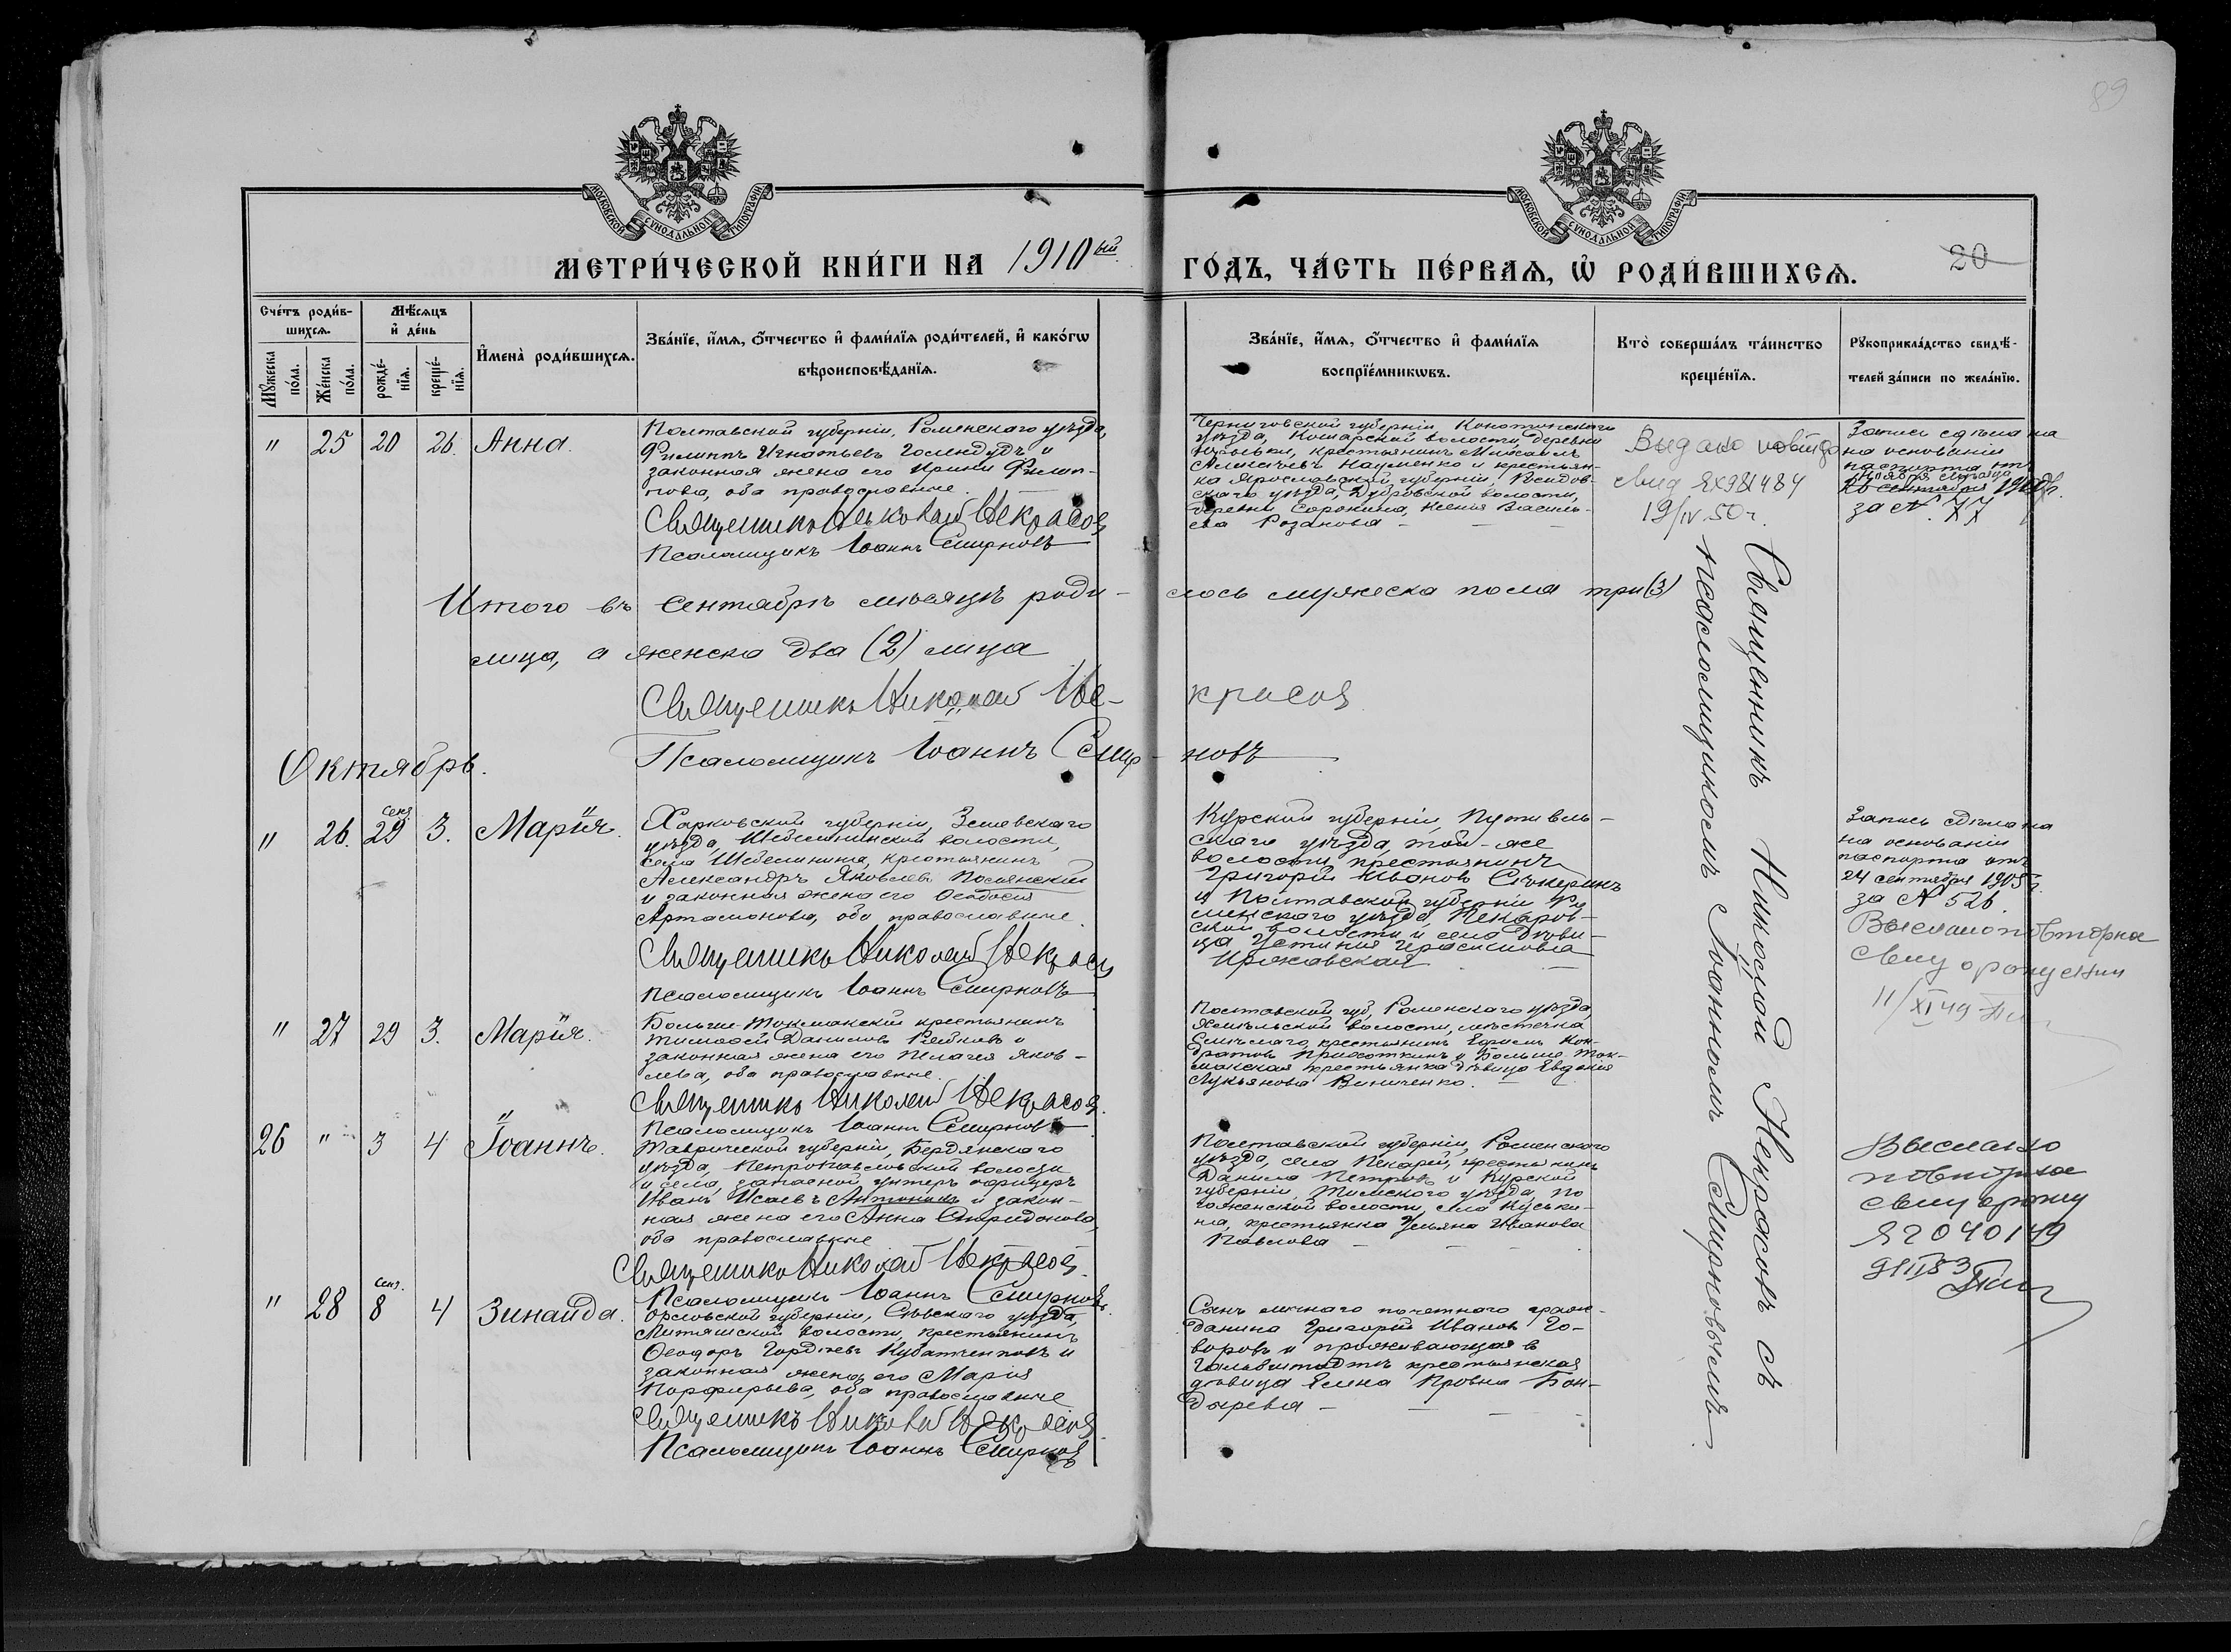 89
МОСКОВСКОЙ СУНОДАЛЬНОЙ ТИПОГРАФІИ
МОСКОВСКОЙ СУНОДАЛЬНОЙ ТИПОГРАФІИ
МЕТРИ́ЧЕСКОЙ КНИ́ГИ НА 1910ый
ГО́ДЪ, ЧА́СТЬ ПЕ́РВАѦ, Ѡ҆ РОДИ́ВШИХСѦ.
20
Сче́тъ роди́в-
шихсѧ.
Мꙋ́жеска по́ла.
Же́нска по́ла.
Мѣ́сѧцъ
и҆ де́нь
рожде́-
нїѧ.
креще́-
нїѧ.
И҆мена̀ роди́вшихсѧ.
Зва́нїе, и҆́мѧ, ѻ҆́тчество и҆ фами́лїѧ роди́телей, и҆ како́гѡ
вѣроисповѣ́данїѧ.
Зва́нїе, и҆́мѧ, ѻ҆́тчество и҆ фами́лїѧ
воспрїе́мникѡвъ.
Кто̀ соверша́лъ та́инство
креще́нїѧ.
Рꙋкоприкла́дство свидѣ́-
телей за́писи по жела́нїю.
" 25 20 26. Анна.
Полтавской губерніи, Роменскаго уѣзда,
Филиппъ Игнатьевъ и
законная жена его Ирина Филип-
пова, оба православные.
Священникъ Николай Некрасов
Псаломщикъ Іоаннъ Смирновъ
Черниговской губерніи, Конотопскаго
уѣзда, волости, деревни
крестьянинъ Михаилъ
Алексѣевъ Науменко и крестьян-
ка Ярославской губерніи,
скаго уѣзда, Дубровской волости,
деревни Сорокина, Ксенія Василь-
ева Розанова
Выдано
свид ЯХ981484
19/IV 50 г.
Запись сдѣлана
на основаніи
паспорта отъ
за №. 77
Итого въ Сентябрѣ мѣсяцѣ роди-лось мужеска пола три (3)
лица, а женска два (2) лица
Священникъ Николай Не-красов
Псаломщикъ Іоаннъ Смир-новъ
Октябрь.
" 26. Сент. 29 3. Марія.
Харковской губерніи, Зміевскаго
уѣзда, волости,
села крестьянинъ
Александръ Яковлевъ Полянскій
и законная жена его Ѳеодосія
Артамонова, оба православные.
Священникъ Николай Некрасов
Псаломщикъ Іоаннъ Смирновъ
Курской губерніи, Путивль-
скаго уѣзда, той-же
волости, крестьянинъ
Григорій Ивановъ
и Полтавской губерніи Ро
менскаго уѣзда, Пекаров-
ской волости и села
Устинія Герасимовна
Иржавская
Запись сдѣлана
на основаніи
паспорта отъ
24 сентября 1905 г.
за № 526.
Выслано повторно
свид о рождении
11/XI 49
" 27 29 3. Марія.
Больше-Токмакскій крестьянинъ
Тимоѳей Даниловъ и
законная жена его Пелагея Яков-
лева, оба православные.
Священникъ Николай Некрасов.
Псаломщикъ Іоаннъ Смирновъ
Полтавской губ, Роменскаго уѣзда,
волости, мѣстечка
крестьянинъ Ефремъ Кон-
дратовъ и Больше-Ток-
макская крестьянка дѣвица Евдокія
Лукьянова Виниченко.
26 " 3 4 Іоаннъ.
Таврической губерніи, Бердянскаго
уѣзда, Петропавловской волости
и села, запасной унтеръ-офицеръ
Иванъ Исаевъ и закон-
ная жена его Анна Спиридонова,
оба православные
Священникъ Николай Некрасов.
Псаломщикъ Іоаннъ Смирновъ.
Полтавской губерніи, Роменскаго
уѣзда, села Пекарей, крестьянинъ
Данило Петровъ и Курской
губерніи, Тимскаго уѣзда,
волости, села
на, крестьянка Ульяна Иванова
Павлова
Выслано
повторно
свид о рожд
" 28 Сент. 8 4 Зинаида.
Орловской губерніи, Сѣвскаго уѣзда,
волости, крестьянинъ
Ѳеодоръ Гордѣевъ и
законная жена его Марія
Порфирьева, оба православные
Священникъ Николай Некрасов
Псаломщикъ Іоаннъ Смирнов
Сынъ личнаго почетнаго граж-
данина Григорій Ивановъ Го-
воровъ и проживающая в
Гальбштадтѣ крестьянская
дѣвица Елена Провна Бон-
дарева
Священникъ Николай Некрасовъ съ
псаломщикомъ Іоанномъ Смирновымъ.